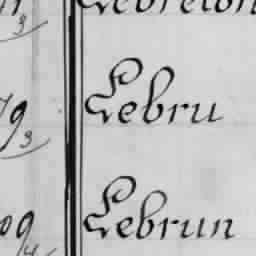 Lebreton
79 3 Lebru
09 4 Lebrun